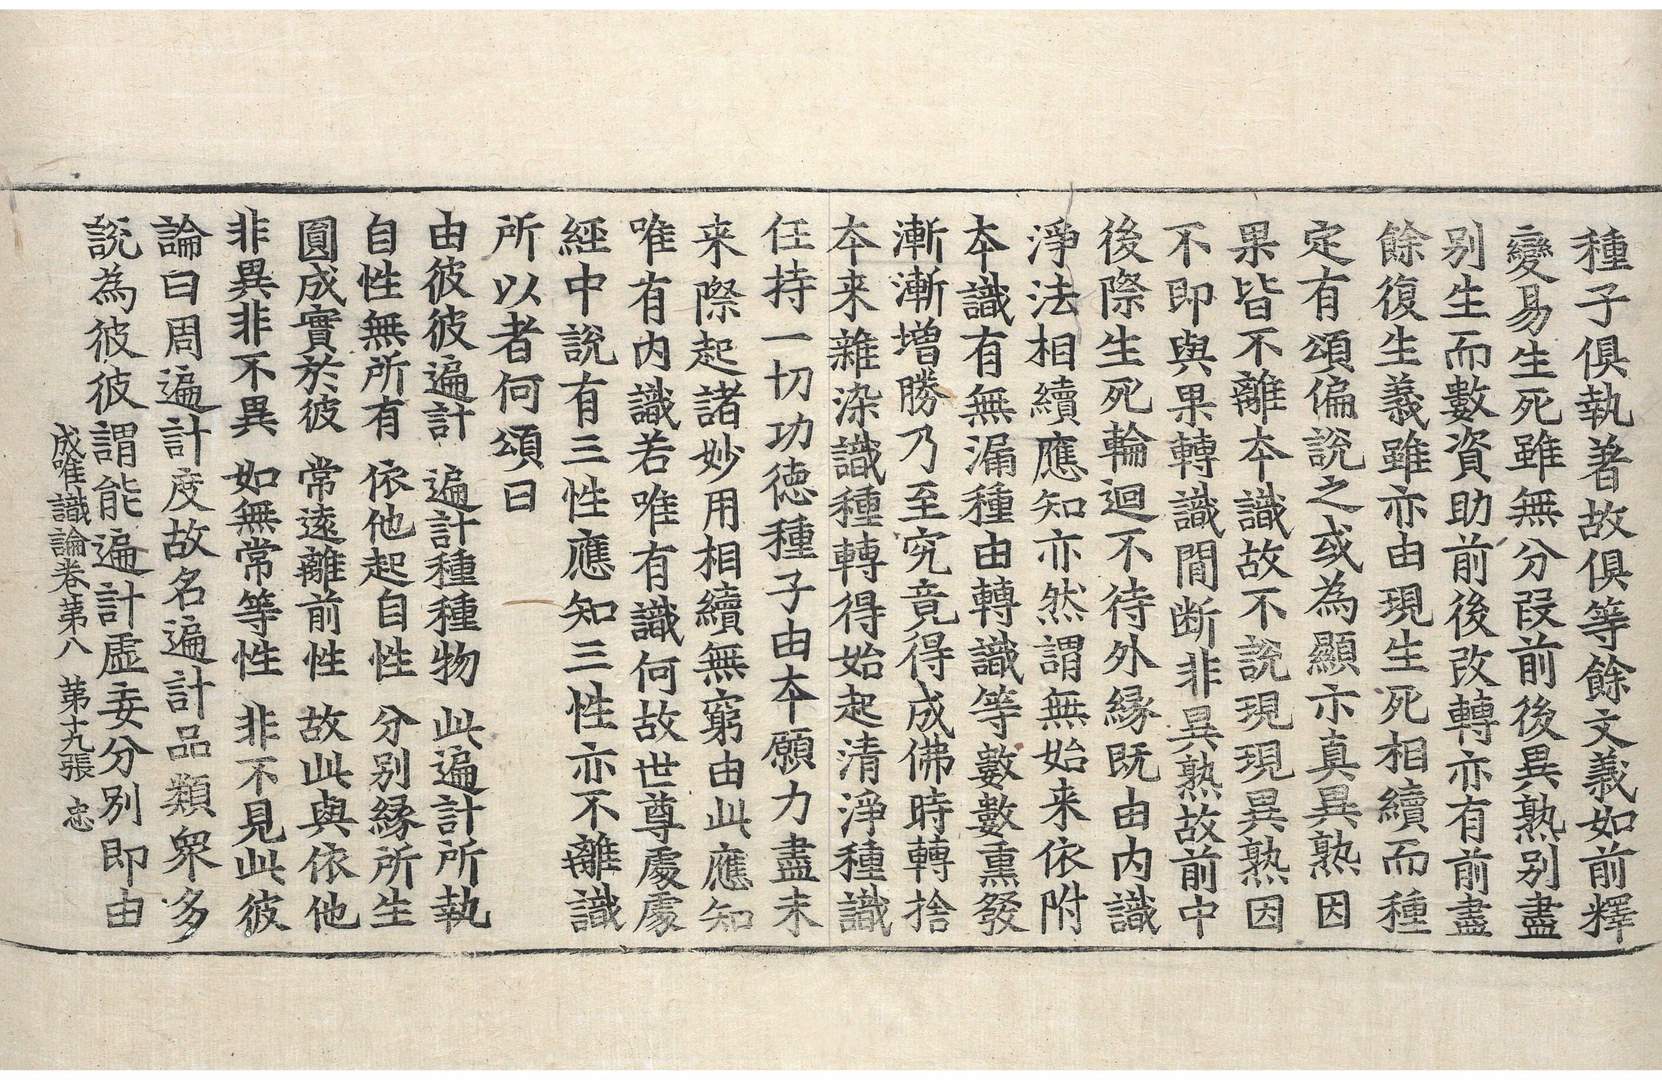 種子俱執著故俱等餘文義如前釋
變易生死雖無分段前後異熟別盡
别生而數資助前後改轉亦有前盡
餘復生義雖亦由現生死相續而種
定有頌偏說之或為顯示真異熟因
果皆不離本識故不說現現異熟因
不即與果轉識間断非異熟故前中
後際生死輪迴不待外縁既由内識
淨法相續應知亦然謂無始来依附
本識有無漏種由轉識等數數熏發
漸漸增勝乃至究竟得成佛時轉捨
本来雜染識種轉得始起清淨種識
任持一切功徳種子由本願力盡未
来際起諸妙用相續無窮由此應知
唯有内識若唯有識何故世尊處處
經中說有三性應知三性亦不離識
所以者何頌曰
由彼彼遍計 遍計種種物 此遍計所執
自性無所有 依他起自性 分别縁所生
圓成實於彼 常遠離前性 故此與依他
非異非不異 如無常等性 非不見此彼
論曰周遍計度故名遍計品類衆多
說為彼彼謂能遍計虚妄分别即由
成唯識論卷第八 第十九張 忠